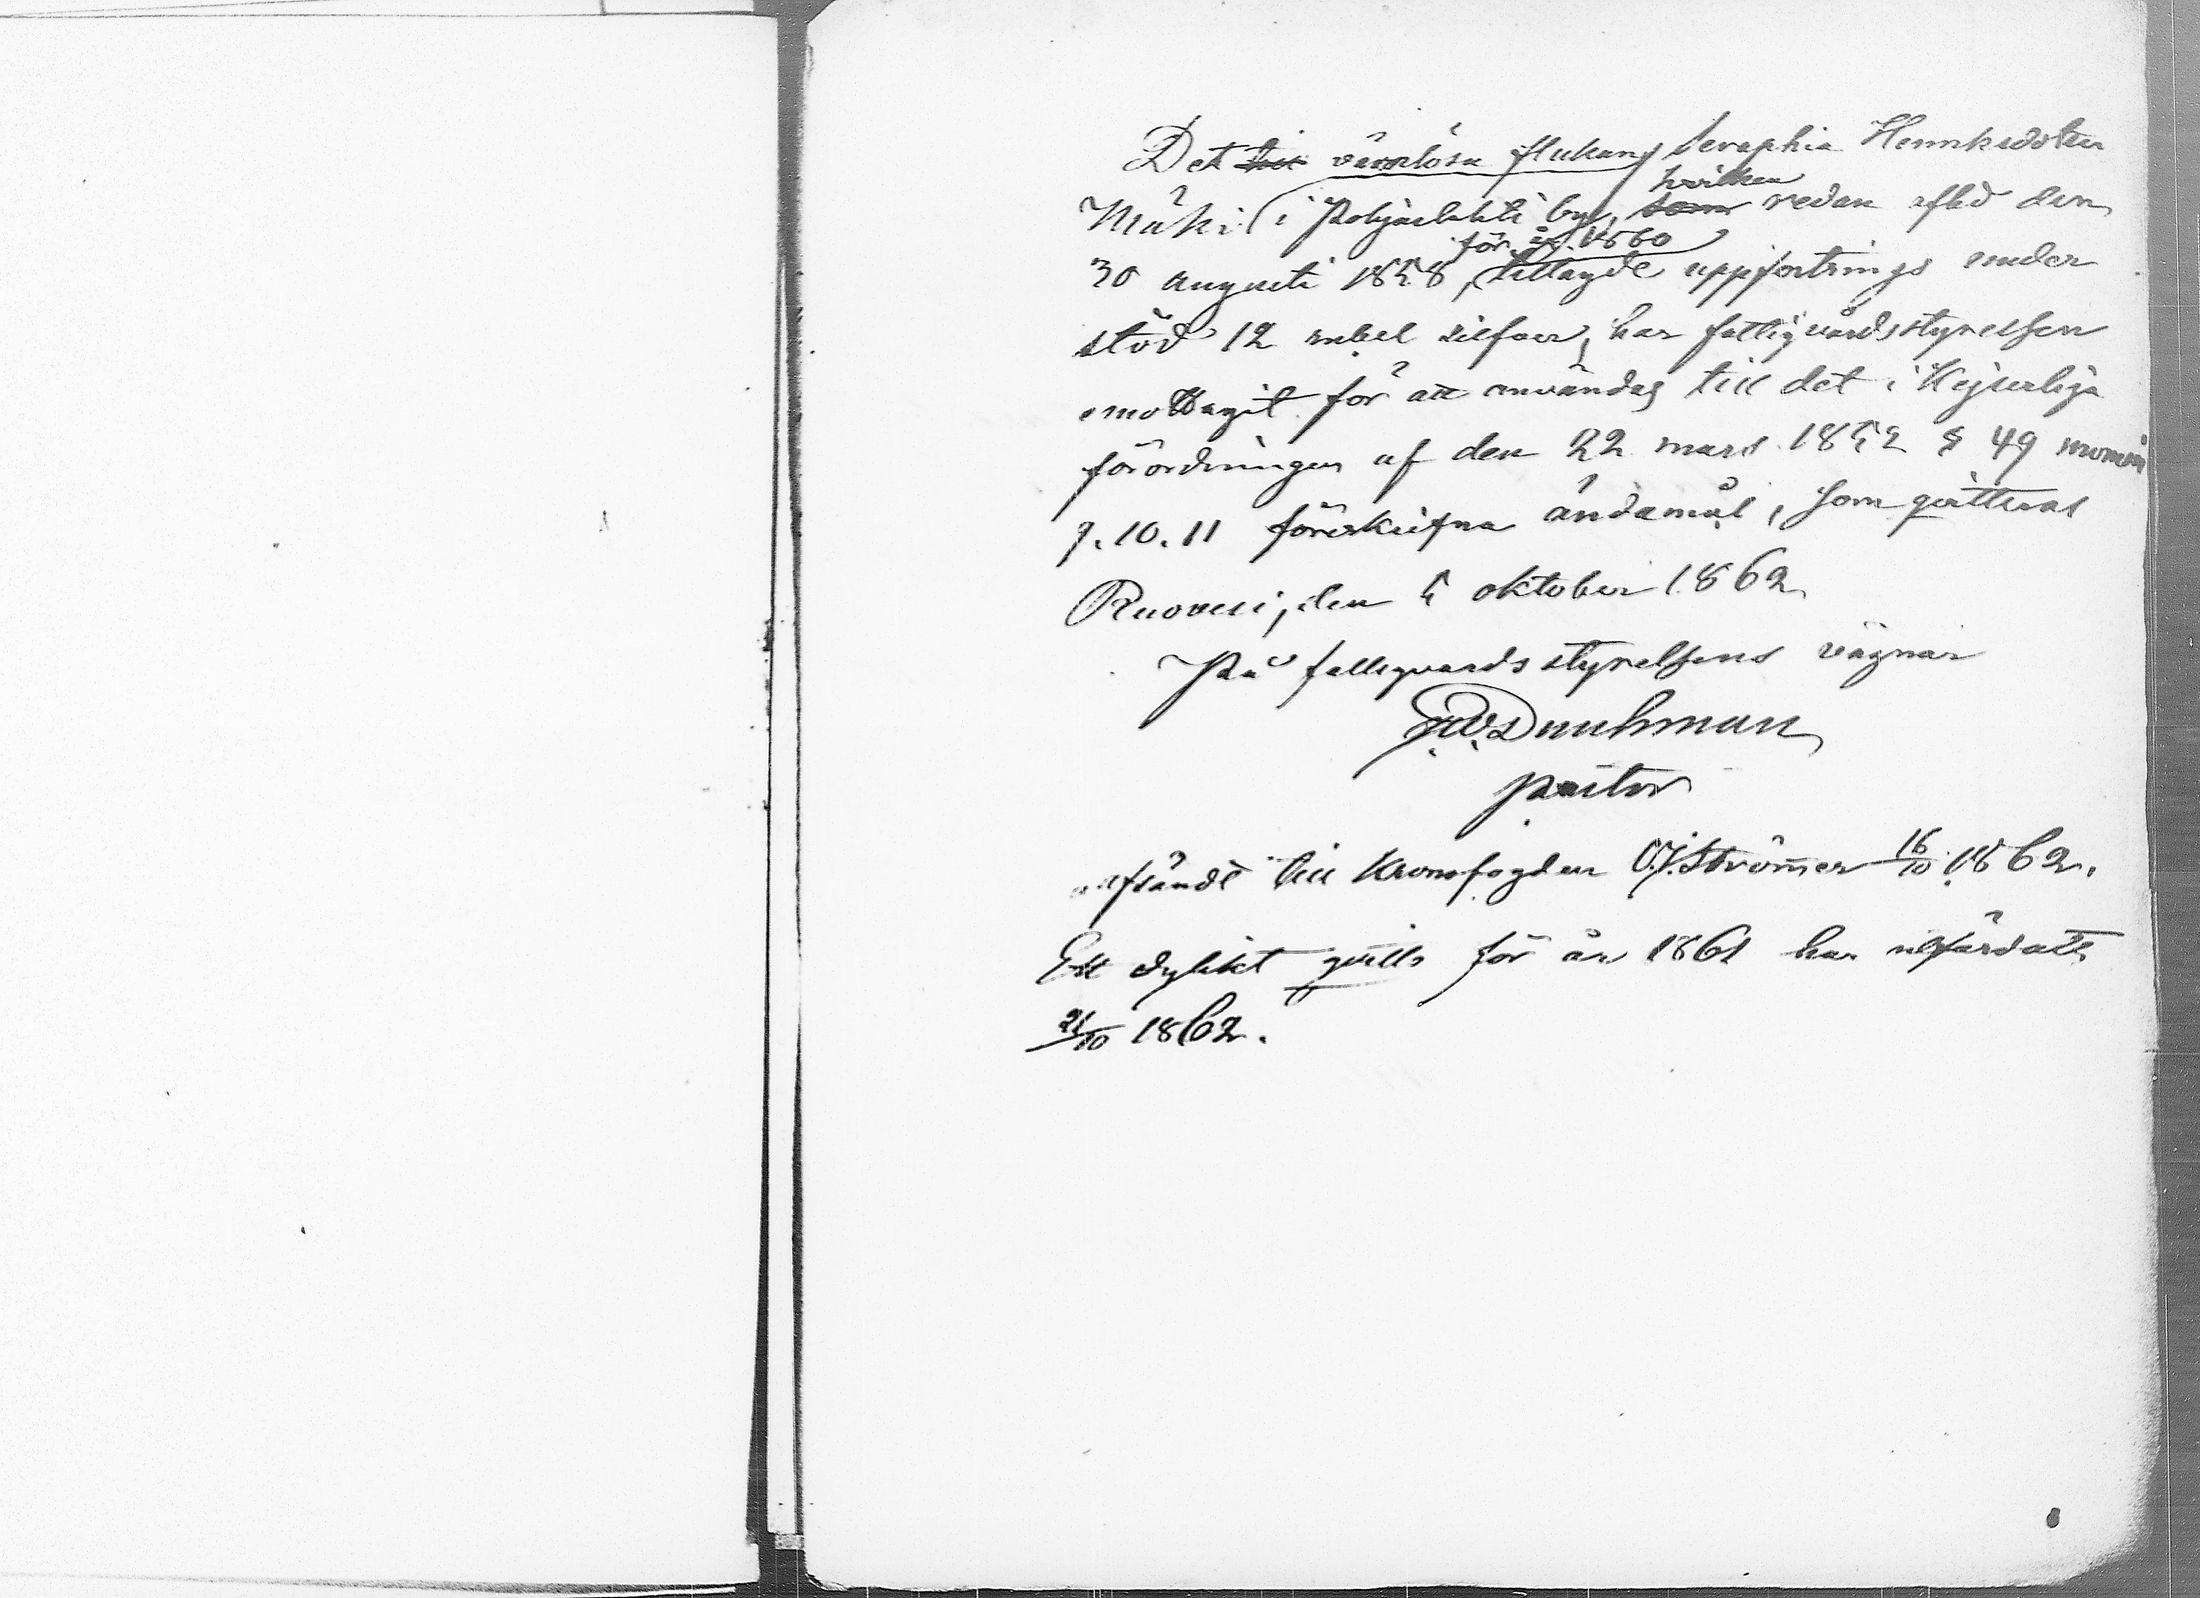 Det värnlösa flickans Seraphia Henriksdotter
hvilken
Mäki i Pohjaslahti by, som redan afled den
för år 1860
30 augusti 1858, tillagde uppfostrings under
stöd 12 rubel silfver, har fattigvårdsstyrelsen
emottagit för att användas till det i Kejserliga
förordningen af den 22 mars 1852 § 49 mom
9. 10. 11 föreskrifna ändamål, som qvitteras
Ruovesi, den 5 oktober 1862
På fattigvårdsstyrelsens vägnar
Durchman
pastor
afsändt till Kronofogden C.J. Strömer 16/10 1862.
Ett dylikt qvitto för år 1861 har utfärdats
21/10 1862.